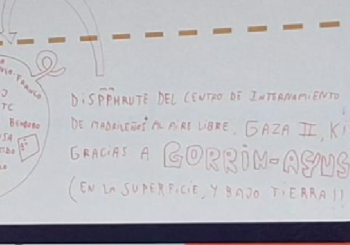 DISPPHRUTE DEL CENTRO DE INTERNAMIENTO
DE MADRILEÑOS AL AIRE LIBRE, GAZA II, K
GRACIAS A GORRIN-AYUS
(EN LA SUPERFICIE, Y BAJO TIERRA!!